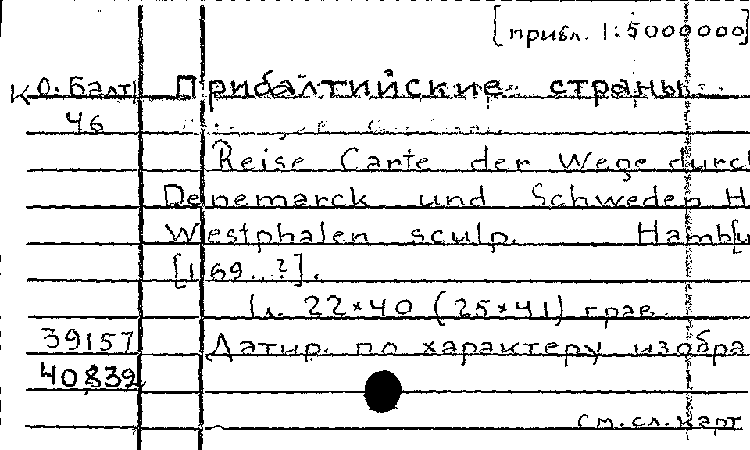 [прибл. 1:5000000]
К О. Балт Прибалтийские страны
46
Reise Carte der Wege durch
Denemarck und Schweden H
Westphalen sculp. Hambu
[169..?].
1 л. 22×40 (25×41) грав.
39157 Датир. по характеру изобра
40839
см. сл. карт